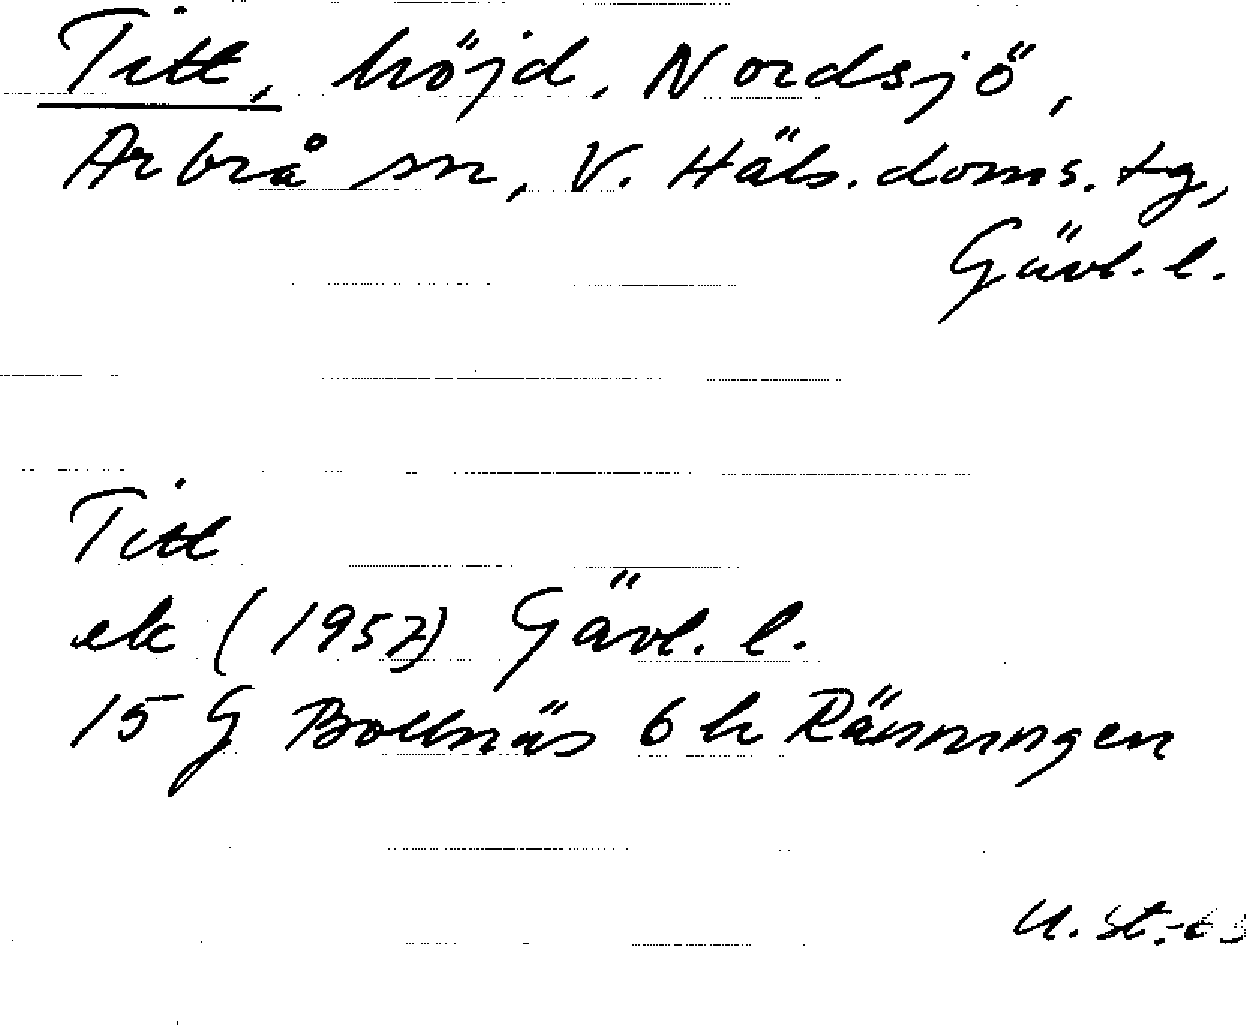 Titt, höjd, Nordsjö,
Arbrå sn, V. Häls. doms. tg,
Gävl. l.
Titt
ek (1957) Gävl. l.
15 G Bollnäs 6 h Ränningen
U. St. -63